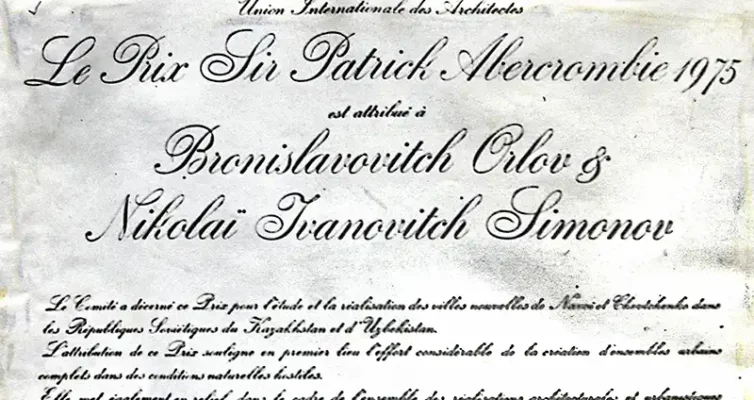 Union Internationale des Architectes
Le Prix Sir Patrick Abercrombie 1975
est attribué à
Bronislavovitch Orlov &
Nikolaï Ivanovitch Simonov
Le Comité a décerné ce Prix pour l'étude et la réalisation des villes nouvelles de Navoï et Chevtchenko dans
les Républiques Soviétiques du Kazakhstan et d'Uzbekistan.
L'attribution de ce Prix souligne en premier lieu l'effort considérable de la création d'ensembles urbains
complets dans des conditions naturelles hostiles.
Elle met également en relief, dans le cadre de l'ensemble des réalisations architecturales et urbanistiques